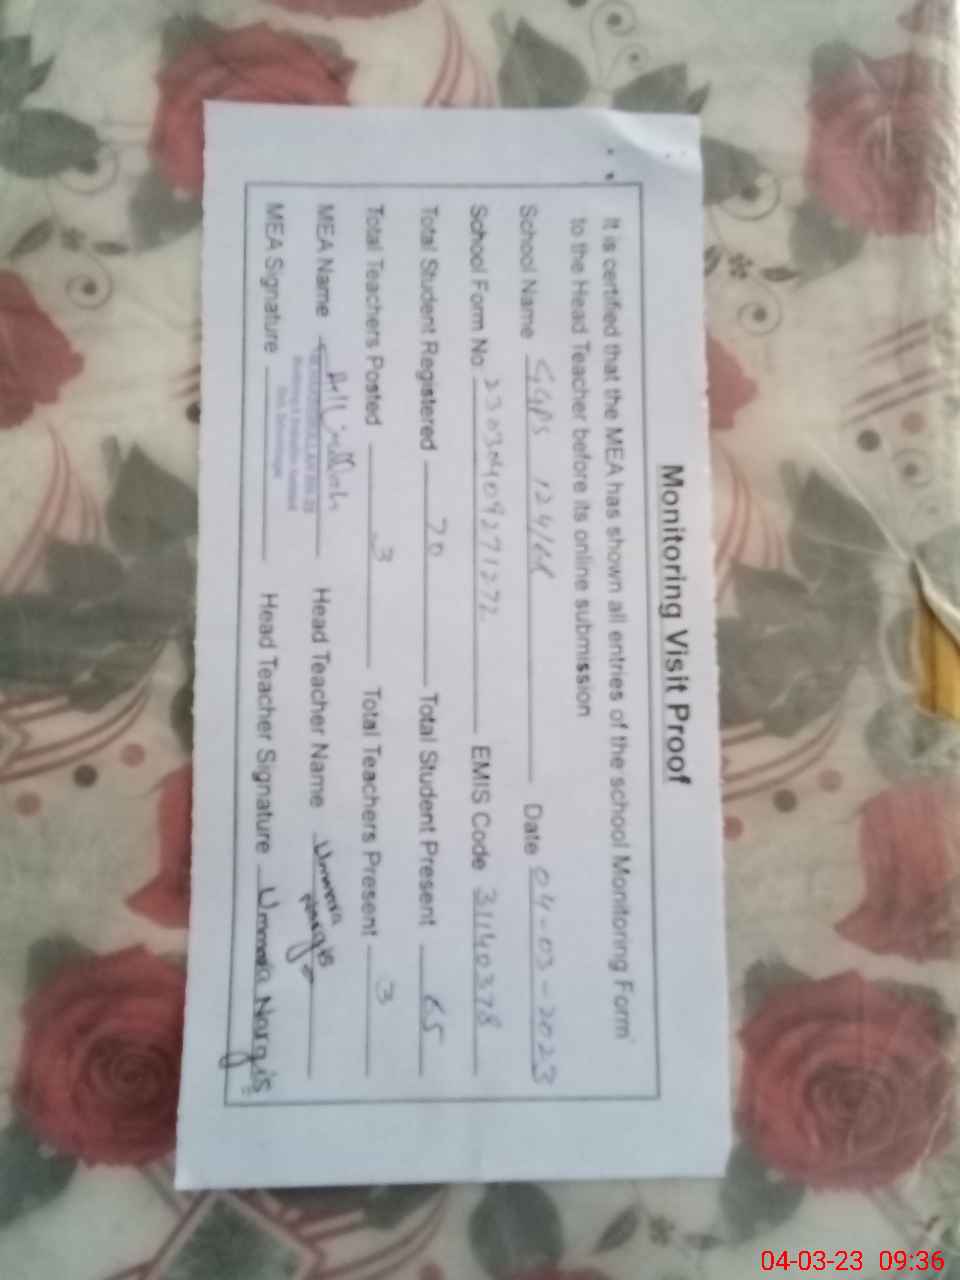 Monitoring Visit Proof
It is certified that the MEA has shown all entries of the school Monitoring Form
to the Head Teacher before its online submission
School Name GGPS 124/ Date 04-03-2023
School Form No 23030409271272 EMIS Code 31140378
Total Student Registered 70 Total Student Present 65
Total Teachers Posted 3 Total Teachers Present 3
MEA Name Head Teacher Name Umma Nargis
MEA Signature Head Teacher Signature Umma Nargis
04-03-23 09:36